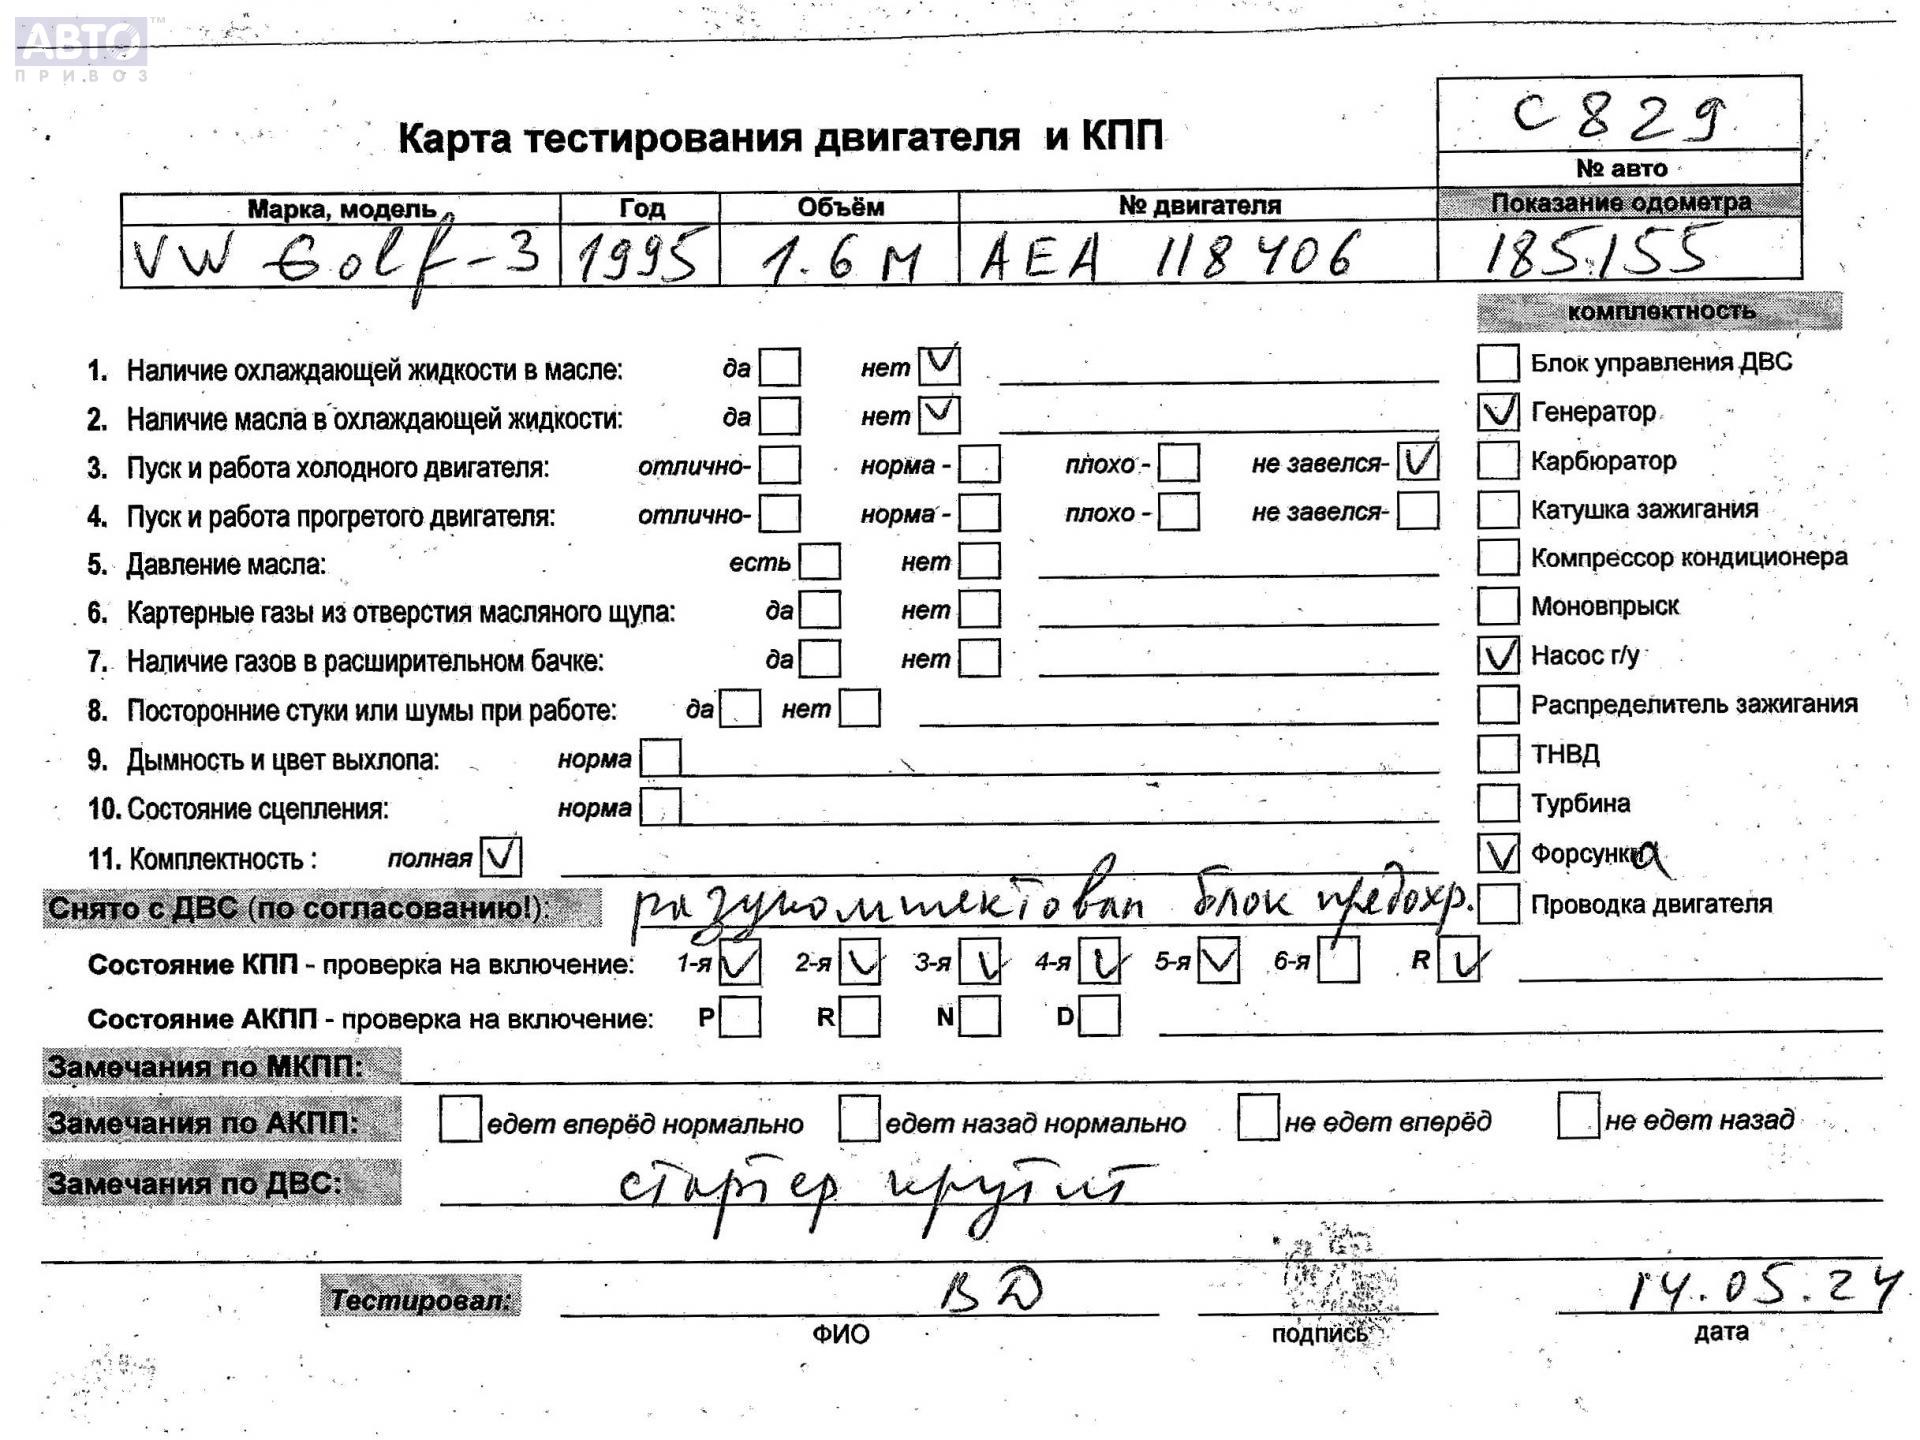 АВТО™
ПРИВОЗ
С829
Карта тестирования двигателя и КПП
№ авто
Марка, модель Год Объём № двигателя Показание одометра
VW Golf-3 1995 1.6 М AEA 118406 185.155
комплектность
1. Наличие охлаждающей жидкости в масле: да нет Блок управления ДВС
2. Наличие масла в охлаждающей жидкости: да нет Генератор
3. Пуск и работа холодного двигателя: отлично- норма - плохо - не завелся- Карбюратор
4. Пуск и работа прогретого двигателя: отлично- норма - плохо - не завелся- Катушка зажигания
5. Давление масла: есть нет Компрессор кондиционера
6. Картерные газы из отверстия масляного щупа: да нет Моновпрыск
7. Наличие газов в расширительном бачке: да нет Насос г/у
8. Посторонние стуки или шумы при работе: да нет Распределитель зажигания
9. Дымность и цвет выхлопа: норма ТНВД
10. Состояние сцепления: норма Турбина
11. Комплектность : полная Форсунка
Снято с ДВС (по согласованию!): разукомплектован блок предохр. Проводка двигателя
Состояние КПП - проверка на включение: 1-я 2-я 3-я 4-я 5-я 6-я R
Состояние АКПП - проверка на включение: P R N D
Замечания по МКПП:
Замечания по АКПП: едет вперёд нормально едет назад нормально не едет вперёд не едет назад
Замечания по ДВС: стартер крутит
Тестировал: ВД 14.05.24
ФИО подпись дата